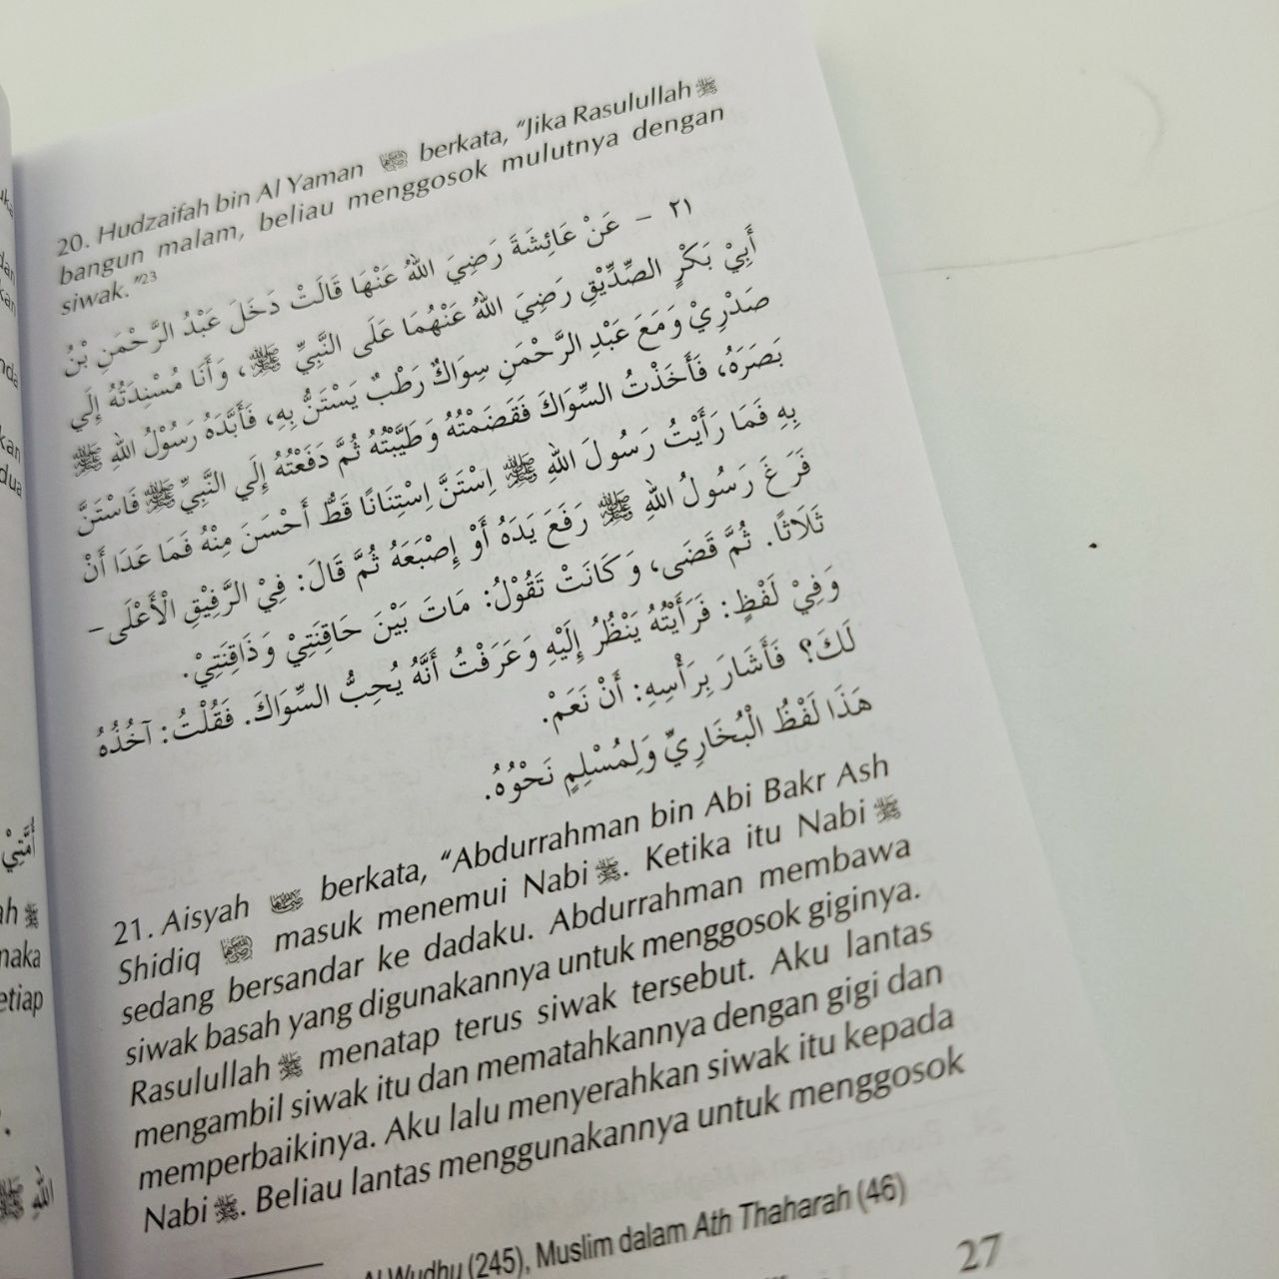 uka
dan
kan
nda
kan
dua
أُمَّتِيْ
ah ﷺ
maka
etiap
اللهِ ﷺ
20. Hudzaifah bin Al Yaman berkata, “Jika Rasulullah ﷺ
bangun malam, beliau menggosok mulutnya dengan
siwak.”23
٢١ – عَنْ عَائِشَةَ رَضِيَ اللهُ عَنْهَا قَالَتْ دَخَلَ عَبْدُ الرَّحْمَنِ بْنُ
أَبِيْ بَكْرٍ الصِّدِّيْقِ رَضِيَ اللهُ عَنْهُمَا عَلَى النَّبِيِّ ﷺ، وَأَنَا مُسْنِدَتُهُ إِلَي
صَدْرِيْ وَمَعَ عَبْدِ الرَّحْمَنِ سِوَاكٌ رَطْبٌ يَسْتَنُّ بِهِ، فَأَبَّدَهُ رَسُوْلُ اللهِ ﷺ
بَصَرَهُ، فَأَخَذْتُ السِّوَاكَ فَقَضَمْتُهُ وَطَيَّبْتُهُ ثُمَّ دَفَعْتُهُ إِلَي النَّبِيِّ ﷺ فَاسْتَنَّ
بِهِ فَمَا رَأَيْتُ رَسُولَ اللهِ ﷺ اِسْتَنَّ اِسْتِنَانًا قَطُّ أَحْسَنَ مِنْهُ فَمَا عَدَا أَنْ
فَرَغَ رَسُولُ اللهِ ﷺ رَفَعَ يَدَهُ أَوْ إِصْبَعَهُ ثُمَّ قَالَ: فِيْ الرَّفِيْقِ الْأَعْلَى–
ثَلَاثًا. ثُمَّ قَضَى، وَكَانَتْ تَقُوْلُ: مَاتَ بَيْنَ حَاقِنَتِيْ وَذَاقِنَتِيْ.
وَفِيْ لَفْظٍ: فَرَأَيْتُهُ يَنْظُرُ إِلَيْهِ وَعَرَفْتُ أَنَّهُ يُحِبُّ السِّوَاكَ. فَقُلْتُ: آخُذُهُ
لَكَ؟ فَأَشَارَ بِرَأْسِهِ: أَنْ نَعَمْ.
هَذَا لَفْظُ الْبُخَارِيِّ وَلِمُسْلِمٍ نَحْوُهُ.
21. Aisyah berkata, “Abdurrahman bin Abi Bakr Ash
Shidiq masuk menemui Nabi ﷺ. Ketika itu Nabi ﷺ
sedang bersandar ke dadaku. Abdurrahman membawa
siwak basah yang digunakannya untuk menggosok giginya.
Rasulullah ﷺ menatap terus siwak tersebut. Aku lantas
mengambil siwak itu dan mematahkannya dengan gigi dan
memperbaikinya. Aku lalu menyerahkan siwak itu kepada
Nabi ﷺ. Beliau lantas menggunakannya untuk menggosok
Al Wudhu (245), Muslim dalam Ath Thaharah (46)
27